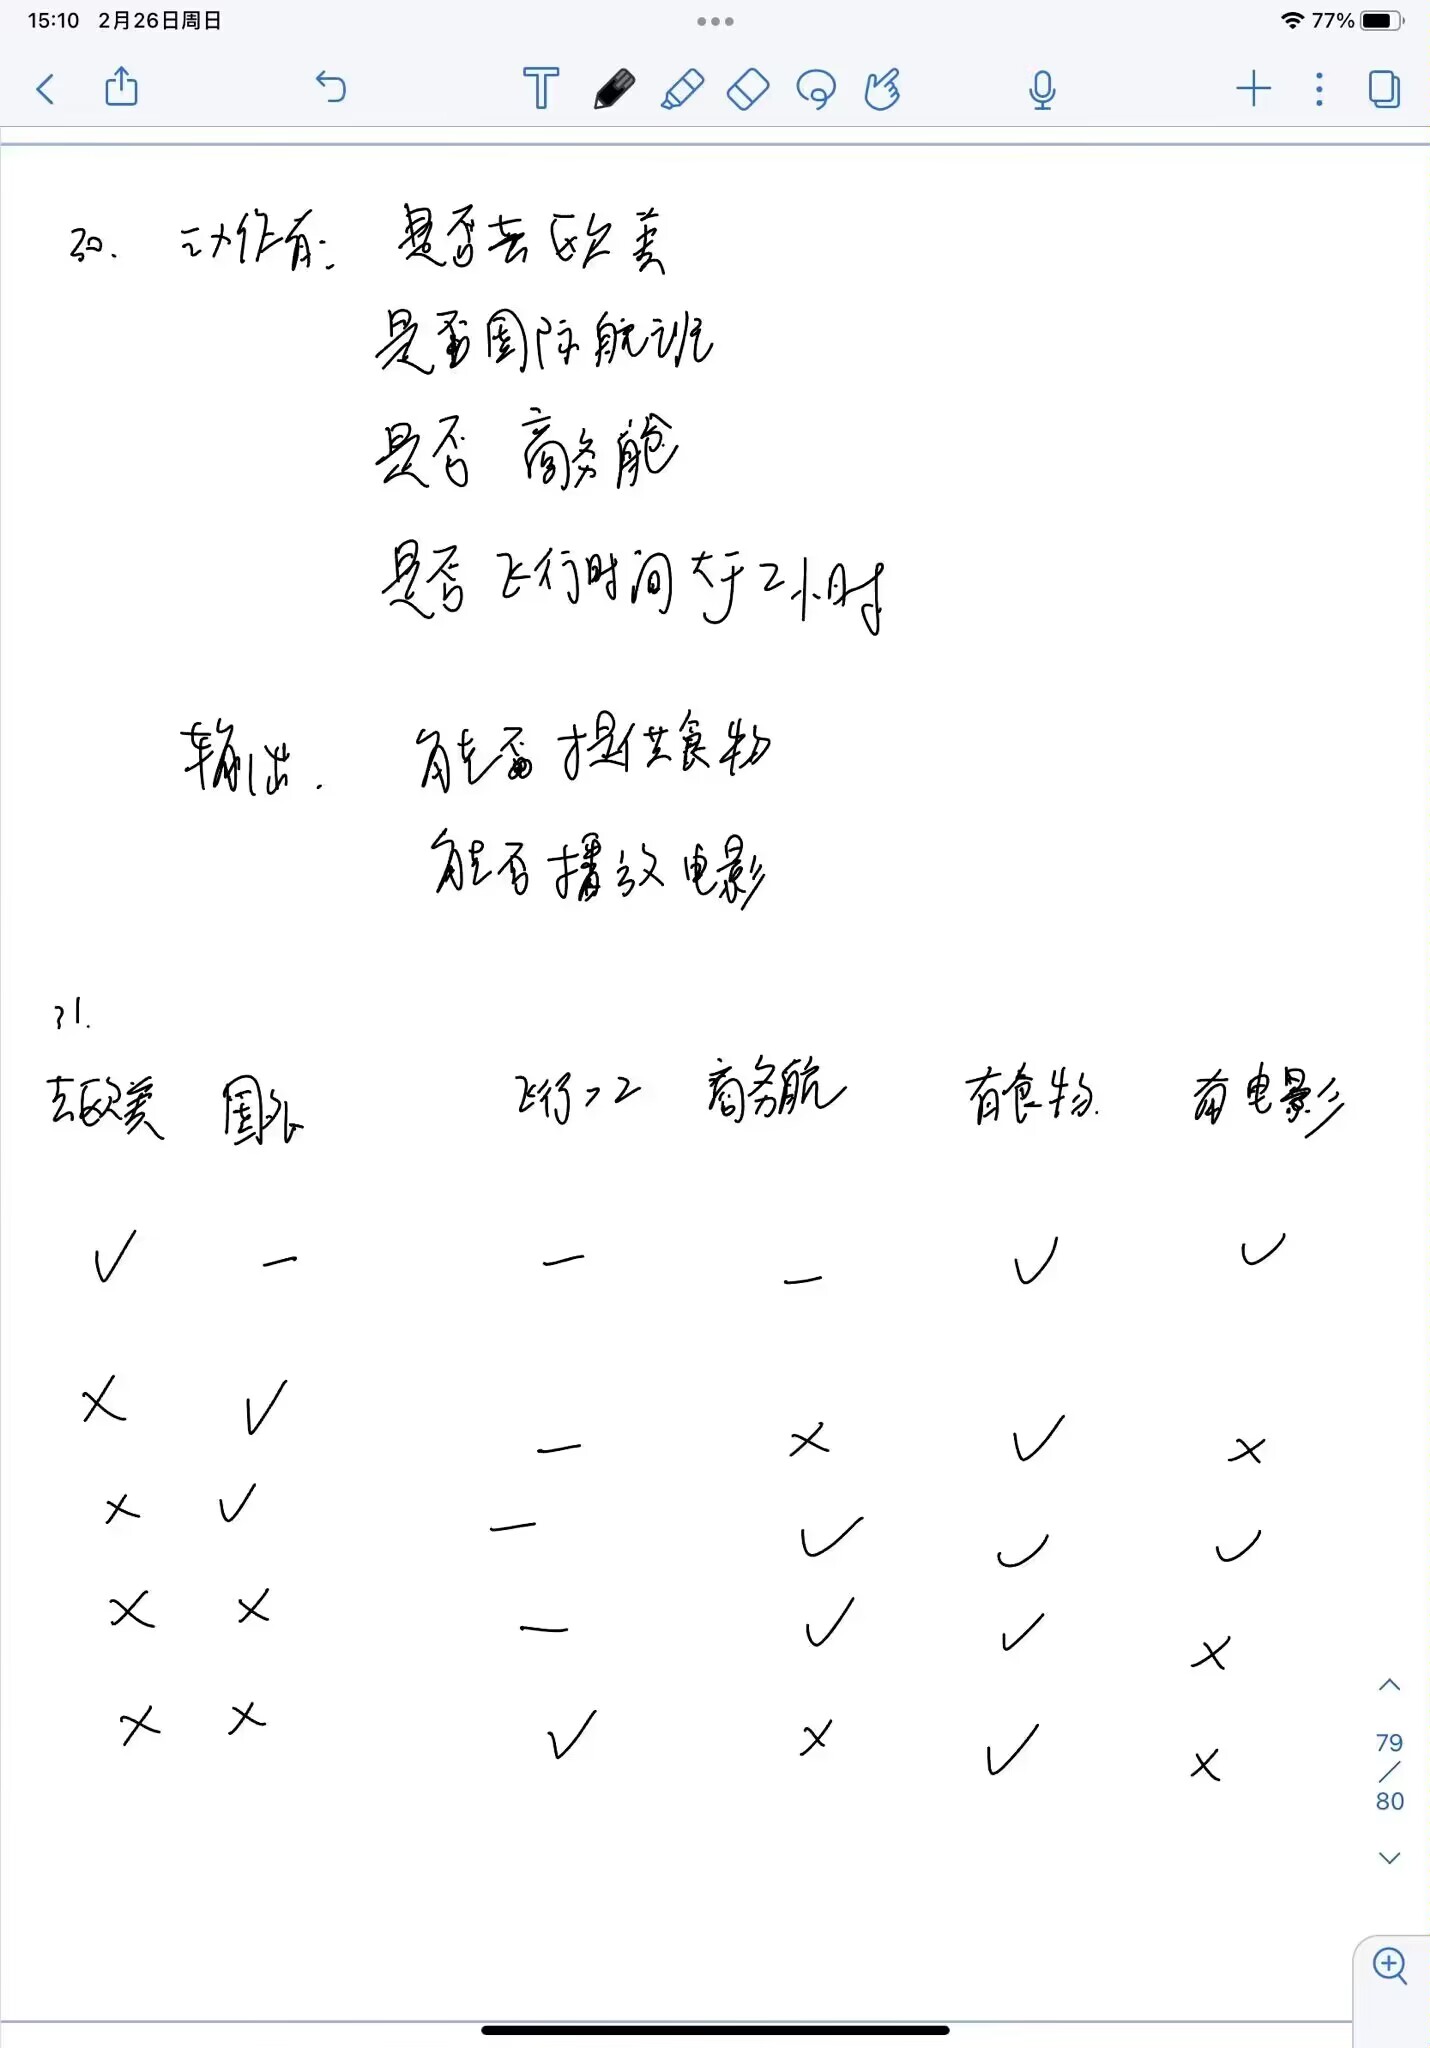 15:10 2月26日周日
77%
30. 动作有: 是否去欧美
是否国际航班
是否 商务舱
是否 飞行时间大于2小时
输出. 能否提供食物
能否播放电影
31.
去欧美 国外 飞行>2 商务航 有食物. 有电影
✓ — — — ✓ ✓
× ✓ — × ✓ ×
× ✓ — ✓ ✓ ✓
× × — ✓ ✓ ×
× × ✓ × ✓ ×
79
/
80